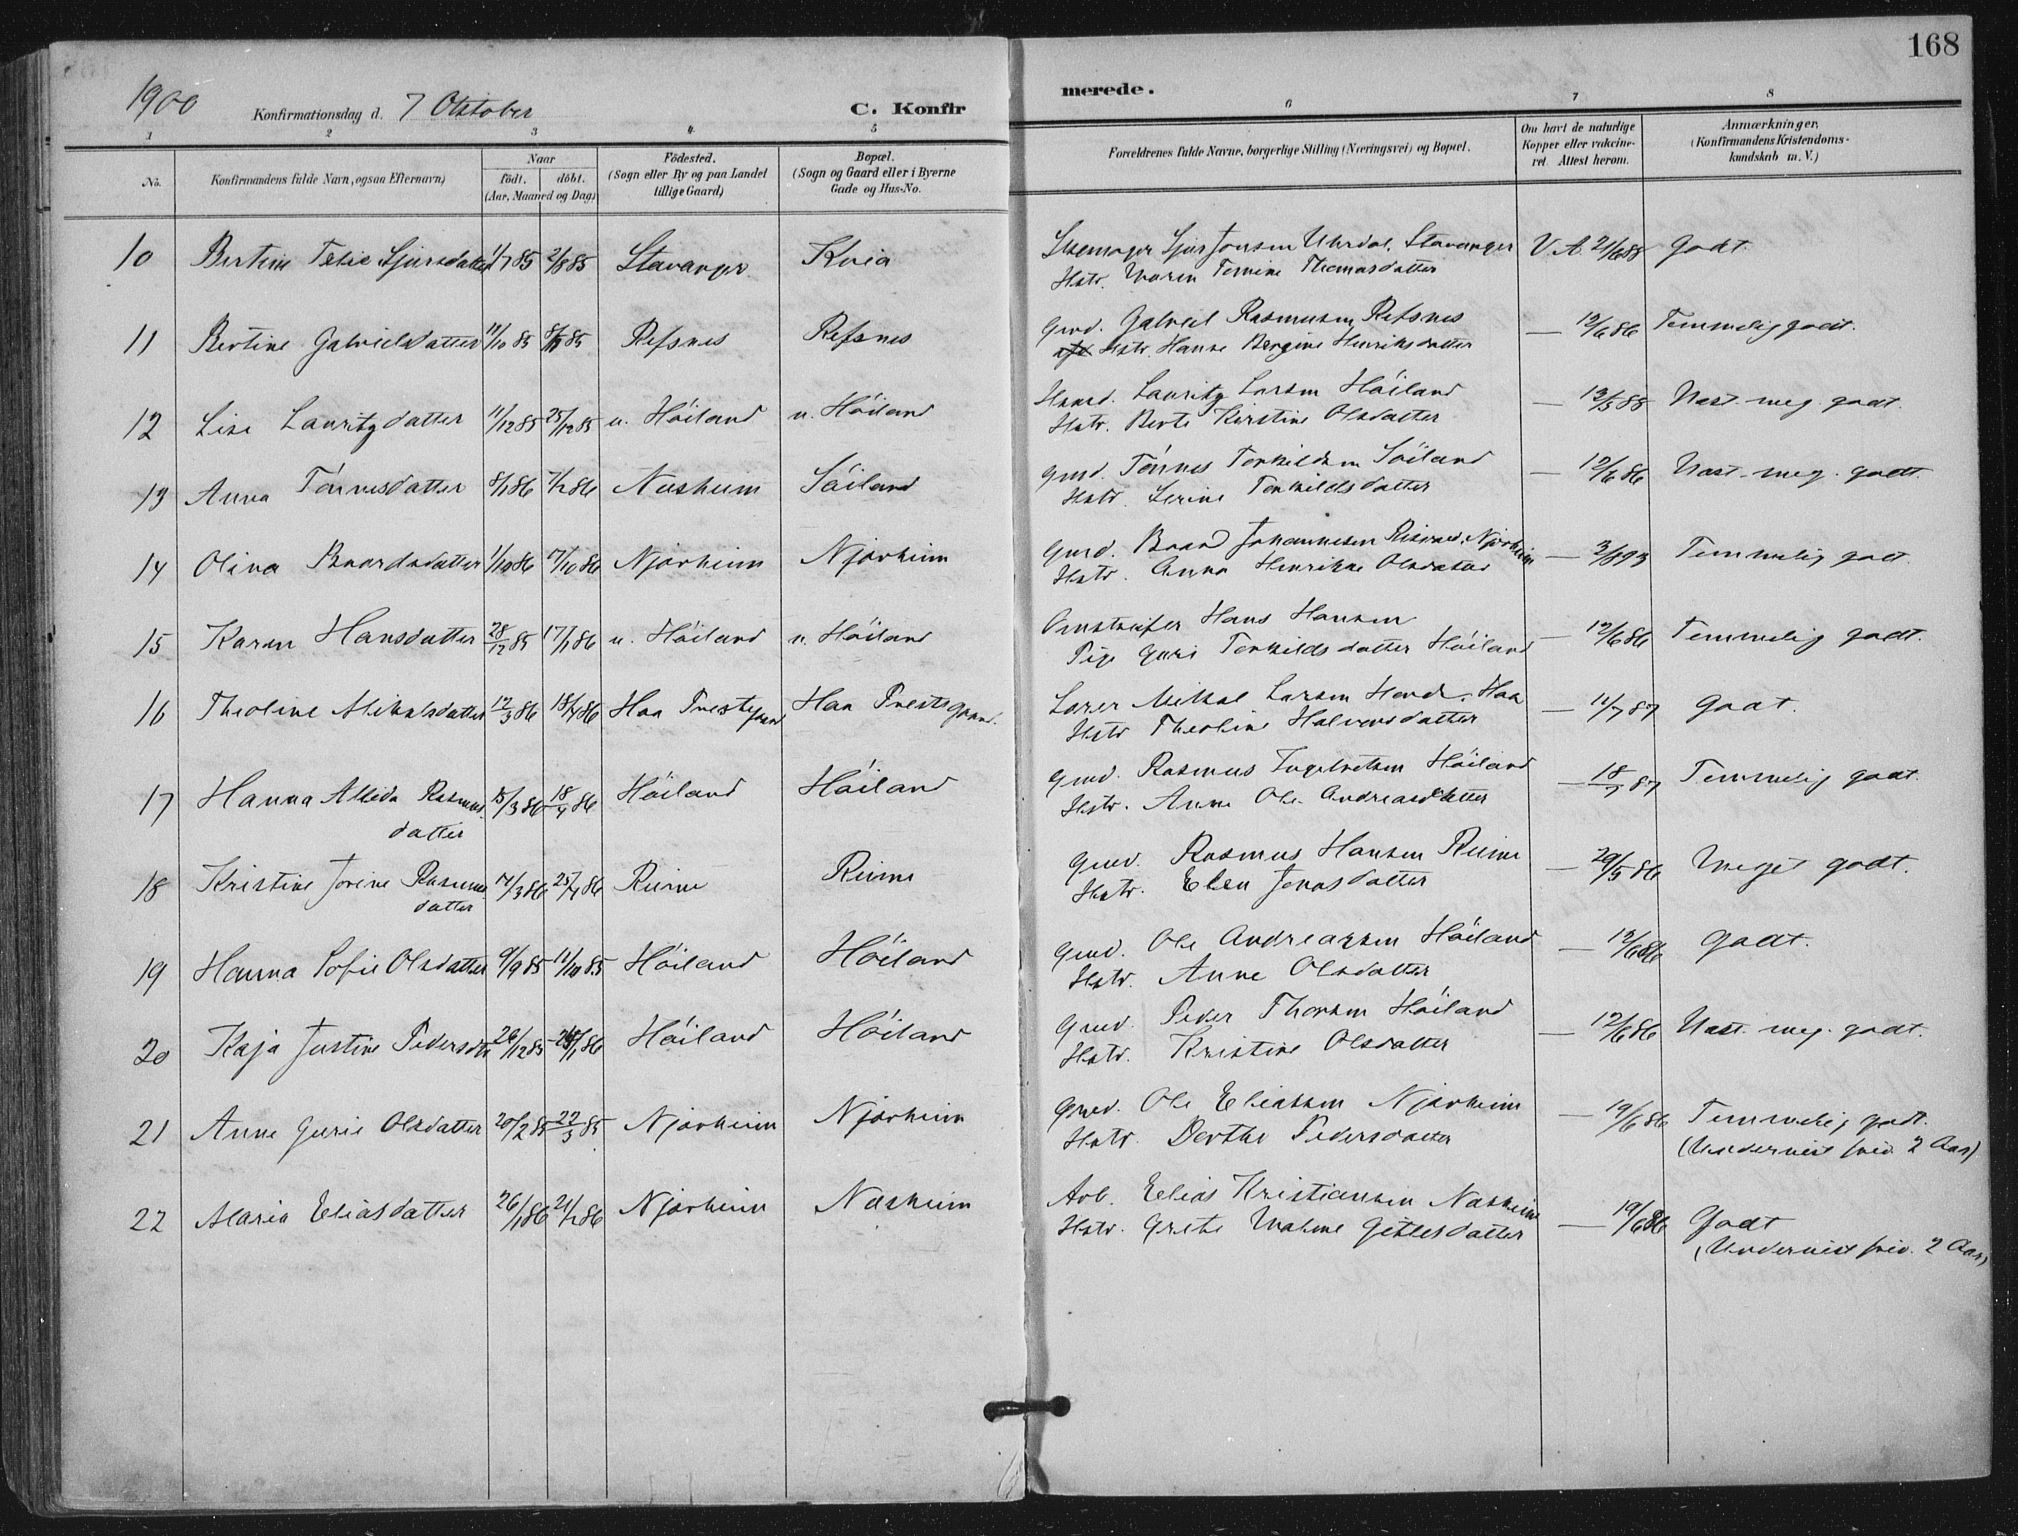 168
1900 Konfirmationsdag d. 7 Oktober C. Konfirmerede.
1 2 3 4 5 6 7 8
No. Konfirmandens fulde Navn, ogsaa Efternavn) Naar født. døbt. (Aar, Maaned og Dag) Fødested. (Sogn eller By og paa Landet tillige Gaard) Bopæl. (Sogn og Gaard eller i Byerne Gade og Hus-No. Forældrenes fulde Navne, borgerlige Stilling (Næringsvei) og Bopæl. Om havt de naturlige Kopper eller vakcineret. Attest herom. Anmærkninger. (Konfirmandens Kristendomskundskab m. V.)
10 Bertine Sjursdatter 1/7 85 2/8 85 Stavanger Kvia Sjur Jonsen Stavanger V. A. 21/6 88 Godt.
Hstr. Maren Tomine Thomasdatter
11 Bertine Gabrielsdatter 11/10 85 85 Refsnes Refsnes Gmd. Gabriel Rasmusen Refsnes — 12/6 86 Temmelig godt.
Hstr. Hanne Bergine Henriksdatter
12 Lise Lauritzdatter 11/12 85 25/12 85 u. Høiland u. Høiland Husmd. Lauritz Larsen Høiland — 88 Næst. meg. godt.
Hstr. Berte Kirstine Olsdatter
13 Anna Tønnesdatter 8/1 86 7/2 86 Næsheim Søiland Gmd. Tønnes Torkildsen Søiland — 12/6 86 Næst. meg. godt.
Hstr. Serine Torkildsdatter
14 Olina Baardsdatter 1/10 86 17/10 86 Njærheim Njærheim Gmd. Baard Johannesen Njærheim — 93 Temmelig godt.
Hstr. Anna Henrikke Olsdatter
15 Karen Hansdatter 28/12 85 17/1 86 u. Høiland u. Høiland Hans Hansen — 12/6 86 Temmelig godt.
Pige Guri Torkildsdatter Høiland
16 Theoline Mikalsdatter 12/3 86 18/4 86 Haa Prestegaard Haa Prestegaard. Lærer Mikal Larsen Haa — 11/7 87 Godt.
Hstr Theoline Halvorsdatter
17 Hanna Alida Rasmus 15/3 86 18/4 86 Høiland Høiland Gmd. Rasmus Ingebretsen Høiland — 18/7 87 Temmelig godt.
datter Hstr. Anne Ole Andreasdatter
18 Kristine Jorine Rasmus 14/3 86 25/4 86 Reime Reime Gmd. Rasmus Hansen Reime — 29/5 86 Meget godt.
datter Hstr. Elen Jonasdatter
19 Hanna Sofie Olsdatter 9/9 85 11/10 85 Høiland Høiland Gmd. Ole Andreassen Høiland — 12/6 86 Godt.
Hstr. Anne Olsdatter
20 Kaja Justine Pedersdtr 26/12 85 86 Høiland Høiland Gmd. Peder Thorsen Høiland — 12/6 86 Næst. meg. godt.
Hstr. Kristine Olsdatter
21 Anne Gurie Olsdatter 20/2 85 22/3 85 Njærheim Njærheim Gmd. Ole Eliassen Njærheim — 19/6 86 Temmelig godt.
Hstr. Berthe Pedersdatter (Undervist priv. 2 Aar)
22 Maria Eliasdatter 26/1 86 21/2 86 Njærheim Næsheim Arb. Elias Kristiansen Næsheim — 19/6 86 Godt
Hstr. Grete Malene Gitlesdatter (Undervist priv. 2 Aar)